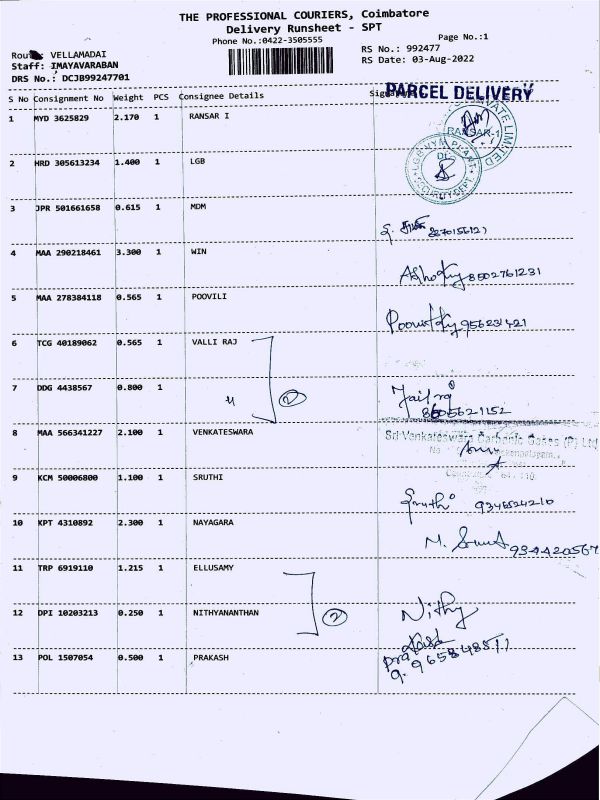 THE PROFESSIONAL COURIERS, Coimbatore
Delivery Runsheet - SPT
Phone No.:0422-3505555
Page No.:1
Route: VELLAMADAI
RS No.: 992477
Staff: IMAYAVARABAN
RS Date: 03-Aug-2022
DRS No.: DCJB99247701
PARCEL DELIVERY
S No Consignment No Weight PCS Consignee Details Signature
1 MYD 3625829 2.170 1 RANSAR I
RANSAR-1
2 HRD 305613234 1.400 1 LGB
SECURITY DEPT
3 JPR 501661658 0.615 1 MDM
4 MAA 290218461 3.300 1 WIN
8502761231
5 MAA 278384118 0.565 1 POOVILI
6 TCG 40189062 0.565 1 VALLI RAJ
7 DDG 4438567 0.800 1
2
8605621152
8 MAA 566341227 2.100 1 VENKATESWARA
Sri Venkateswara Carbonic Gases (P) Ltd
9 KCM 50006800 1.100 1 SRUTHI
Sruthi 9346524210
10 KPT 4310892 2.300 1 NAYAGARA
934420567
11 TRP 6919110 1.215 1 ELLUSAMY
12 DPI 10203213 0.250 1 NITHYANANTHAN
2
Nithy
13 POL 1507054 0.500 1 PRAKASH